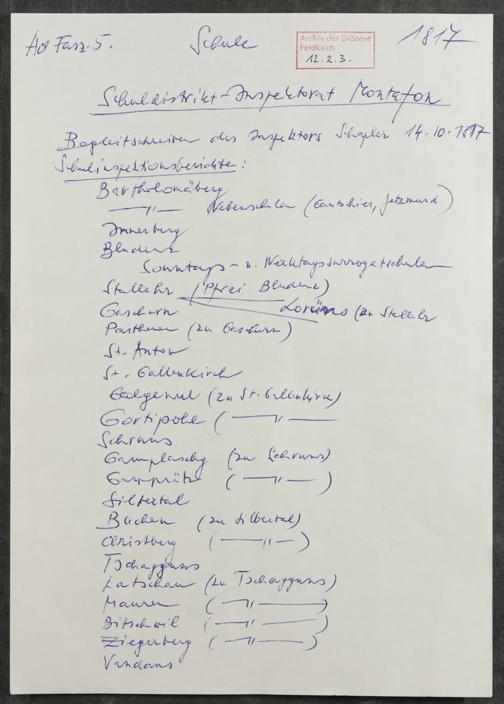 Ad Fasz. 5.
Schule
Archiv der Diözese
Feldkirch
12.2.3.
1817
Schuldistrikt-Inspektorat Montafon
Begleitschreiben des Inspektors 14.10.1817
Schulinspektionsberichte:
Bartholomäberg
—"— Nebenschulen (Gantschier, Jetzmunt)
Innerberg
Bludenz
Sonntags- u. Werktagssurrogatschulen
Stallehr (Pfrei Bludenz)
Lorüns (zu Stallehr
Gaschurn
Parthenen (zu Gaschurn)
St. Anton
St. Gallenkirch
Galgenul (zu St. Gallenkirch)
Gortipohl (—"—
Schruns
Gamplaschg (zu Schruns)
Gamprätz (—"—)
Silbertal
Buchen (zu Silbertal)
Christberg (—"—)
Tschagguns
Latschau (zu Tschagguns)
Mauren (—"—)
Bitschweil (—"—)
Ziegerberg (—"—)
Vandans